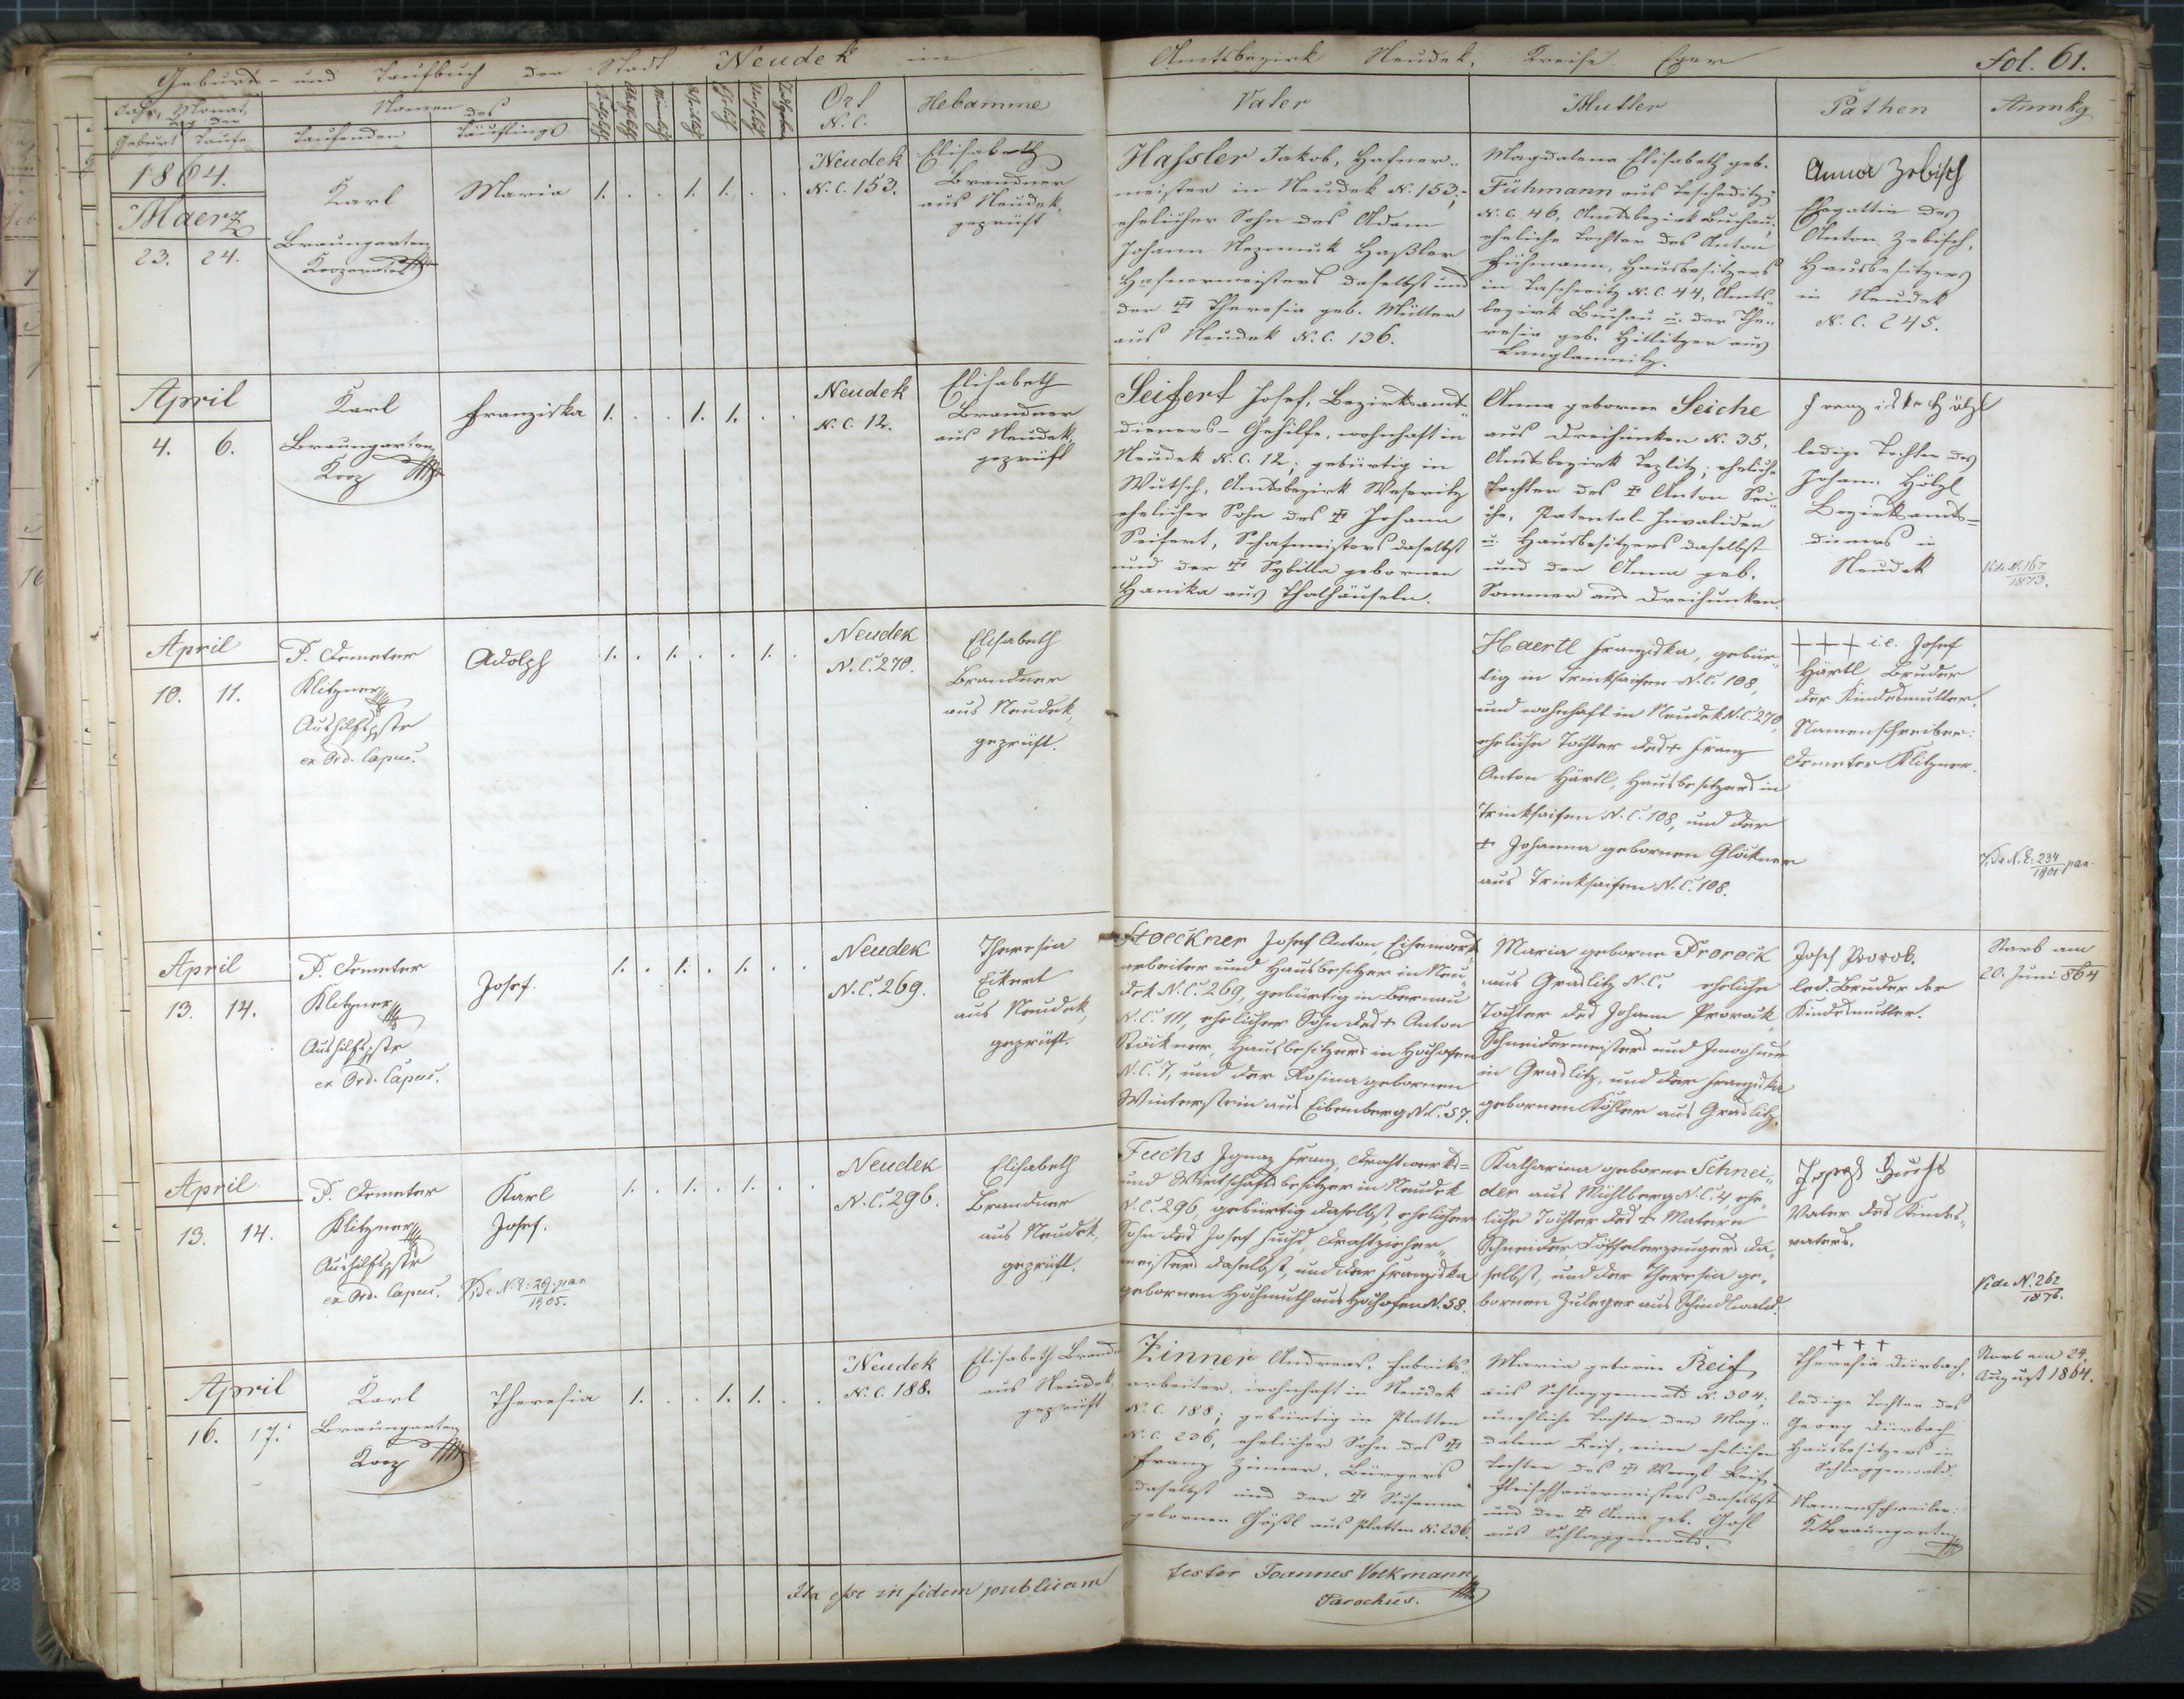 Geburts- und Taufbuch der Stadt Neudek im
Amtsbezirk Neudek, Kreise Eger Fol. 61.
Jahr, Monat,
Tag der
Geburt Taufe
Namen des
Taufenden Täuflings
Ort
N. C.
Hebamme
Vater
Mutter
Pathen
Anmkg
1864.
Maerz
23. 24.
Karl
Braungarten
Kooperator
Maria
1. . . 1. 1. . .
Neudek
N. C. 153.
Elisabeth
Brandner
aus Neudek,
geprüft
Hassler Jakob, Hafner-
meister in Neudek N. 153,
ehelicher Sohn des Adam
Johann Nepomuk Haßler
Hafnermeisters daselbst und
der Theresia geb. Müller
aus Neudek N. C. 136.
Magdalena Elisabeth geb.
Fühmann aus
N. C. 46, Amtsbezirk Buchau,
eheliche Tochter des Anton
Fühmann, Hausbesitzers
in N. C. 44, Amts-
bezirk Buchau u. der The-
resia geb. Hillitzer aus
Langlamnitz.
Anna Zebisch
Ehegattin des
Anton Zebisch,
Hausbesitzers
in Neudek
N. C. 245.
April
4. 6.
Karl
Braungarten
Koop
Franziska
1. . . 1. 1. . .
Neudek
N. C. 12.
Elisabeth
Brandner
aus Neudek,
geprüft
Seifert Josef, Bezirksamts-
dieners-Gehilfe, wohnhaft in
Neudek N. C. 12, gebürtig in
Wutsch, Amtsbezirk Weseritz
ehelicher Sohn des Johann
Seifert, Schafmeisters daselbst
und der Sybilla gebornen
Hanika aus Thalhäuseln.
Anna geborne Seiche
aus Dreihunken N. 35,
Amtsbezirk Teplitz, eheliche
Tochter des Anton Sei-
che, Patental-Invaliden
u. Hausbesitzers daselbst
und der Anna geb.
Sommer aus Dreihunken.
Franziska Hölzl
ledige Tochter des
Johann Hölzl
Bezirksamts-
dieners in
Neudek
Vide N. 167
1873.
April
10. 11.
P. Demeter
Klitzner
Aushilfspstr
ex Ord. Capuc.
Adolph
1. . 1. . . 1. .
Neudek
N. C. 270.
Elisabeth
Brandner
aus Neudek,
geprüft.
Haertl Franziska, gebür-
tig in Trinksaifen N. C. 108,
und wohnhaft in Neudek N. C. 270,
eheliche Tochter des + Franz
Anton Härtl, Hausbesitzers in
Trinksaifen N. C. 108, und der
+ Johanna gebornen Glöckner
aus Trinksaifen N. C. 108.
+ + + i. e. Josef
Härtl Bruder
der Kindesmutter.
Namenschreiber:
Demeter Klitzner.
Vide N. E. 234 par.
1901
April
13. 14.
P. Demeter
Klitzner
Aushilfspstr
ex Ord. Capuc.
Josef.
1. . 1. . 1. . .
Neudek
N. C. 269.
Theresia
Eckert
aus Neudek,
geprüft.
Stoeckner Josef Anton, Eisenwerk-
arbeiter und Hausbesitzer in Neu-
dek N. C. 269, gebürtig in Bernau
N. C. 111, ehelicher Sohn des + Anton
Stöckner, Hausbesitzers in Hochofen
N. C. 7, und der Rosina gebornen
Winterstein aus Eibenberg N. C. 57.
Maria geborne Prorock
aus Gradlitz N. C. eheliche
Tochter des Johann Prorock,
Schneidermeisters und Inwohner
in Gradlitz, und der Franziska
gebornen Köhler aus Gradlitz.
Josef Prorok.
led. Bruder der
Kindesmutter.
Starb am
20. Juni 864
April
13. 14.
P. Demeter
Klitzner
Aushilfspstr
ex Ord. Capuc.
Karl
Josef.
Vide N. E. 29. par
1905.
1. . 1. . 1. . .
Neudek
N. C. 296.
Elisabeth
Brandner
aus Neudek,
geprüft.
Fuchs Ignaz Franz, Drahtwerks-
und Wirtschaftsbesitzer in Neudek
N. C. 296, gebürtig daselbst, ehelicher
Sohn des Josef Fuchs, Drahtzieher-
meisters daselbst, und der Franziska
gebornen Hochmuth aus Hochofen N. 58.
Katharina geborne Schnei-
der aus Mühlberg N. C. 4, ehe-
liche Tochter des + Matern
Schneider, Löffelerzeugers da-
selbst, und der Theresia ge-
bornen Zuleger aus Schindlwald.
Josef Fuchs
Vater des Kindes-
vaters.
Vide N. 262
1876.
April
16. 17.
Karl
Braungarten
Koop
Theresia
1. . . 1. 1. . .
Neudek
N. C. 188.
Elisabeth Brandner
aus Neudek,
geprüft
Zinner Andreas, Fabriks-
arbeiter, wohnhaft in Neudek
N. C. 188; gebürtig in Platten
N. C. 236, ehelicher Sohn des
Franz Zinner, Bürgers
daselbst und der Susanna
gebornen Gößl aus Platten N. 236.
Maria geborne Reif
aus Schlaggenwald N. 304;
uneheliche Tochter der Mag-
dalena Reif, einer ehelichen
Tochter des Wenzl Reif,
Fleischhauermeisters daselbst
und der Anna geb. Gohl
aus Schlaggenwald.
+ + +
Theresia Dürbach,
ledige Tochter des
Georg Dürbach
Hausbesitzers in
Schlaggenwald.
Namensschreiber:
K. Braungarten
Starb am 24.
August 1864.
Ita esse in fidem publicam
testor Joannes Volkmann,
Parochus.